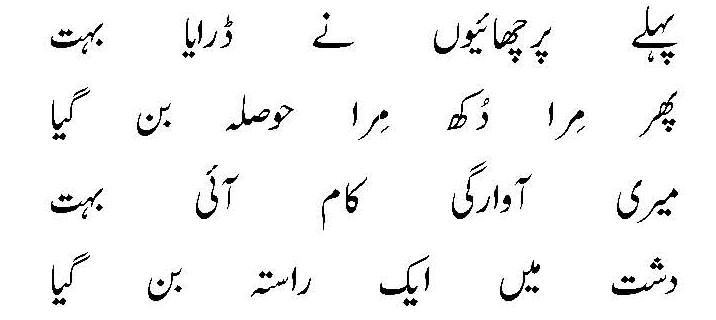 پہلے پرچھائیوں نے ڈرایا بہت
پھر مِرا دُکھ مِرا حوصلہ بن گیا
میری آوارگی کام آئی بہت
دشت میں ایک راستہ بن گیا